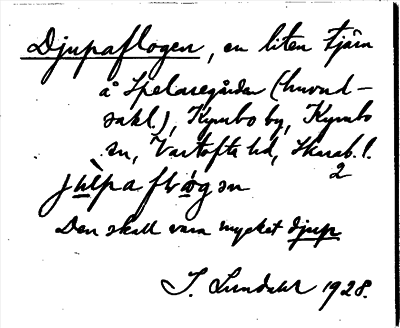 Djupaflogen, en liten tjärn
å Spelaregården (huvud-
sakl.), Kymbo by, Kymbo
sn, Vartofta hd, Skarab. l.
2
Den skall vara mycket djup
J. Lundahl 1928.